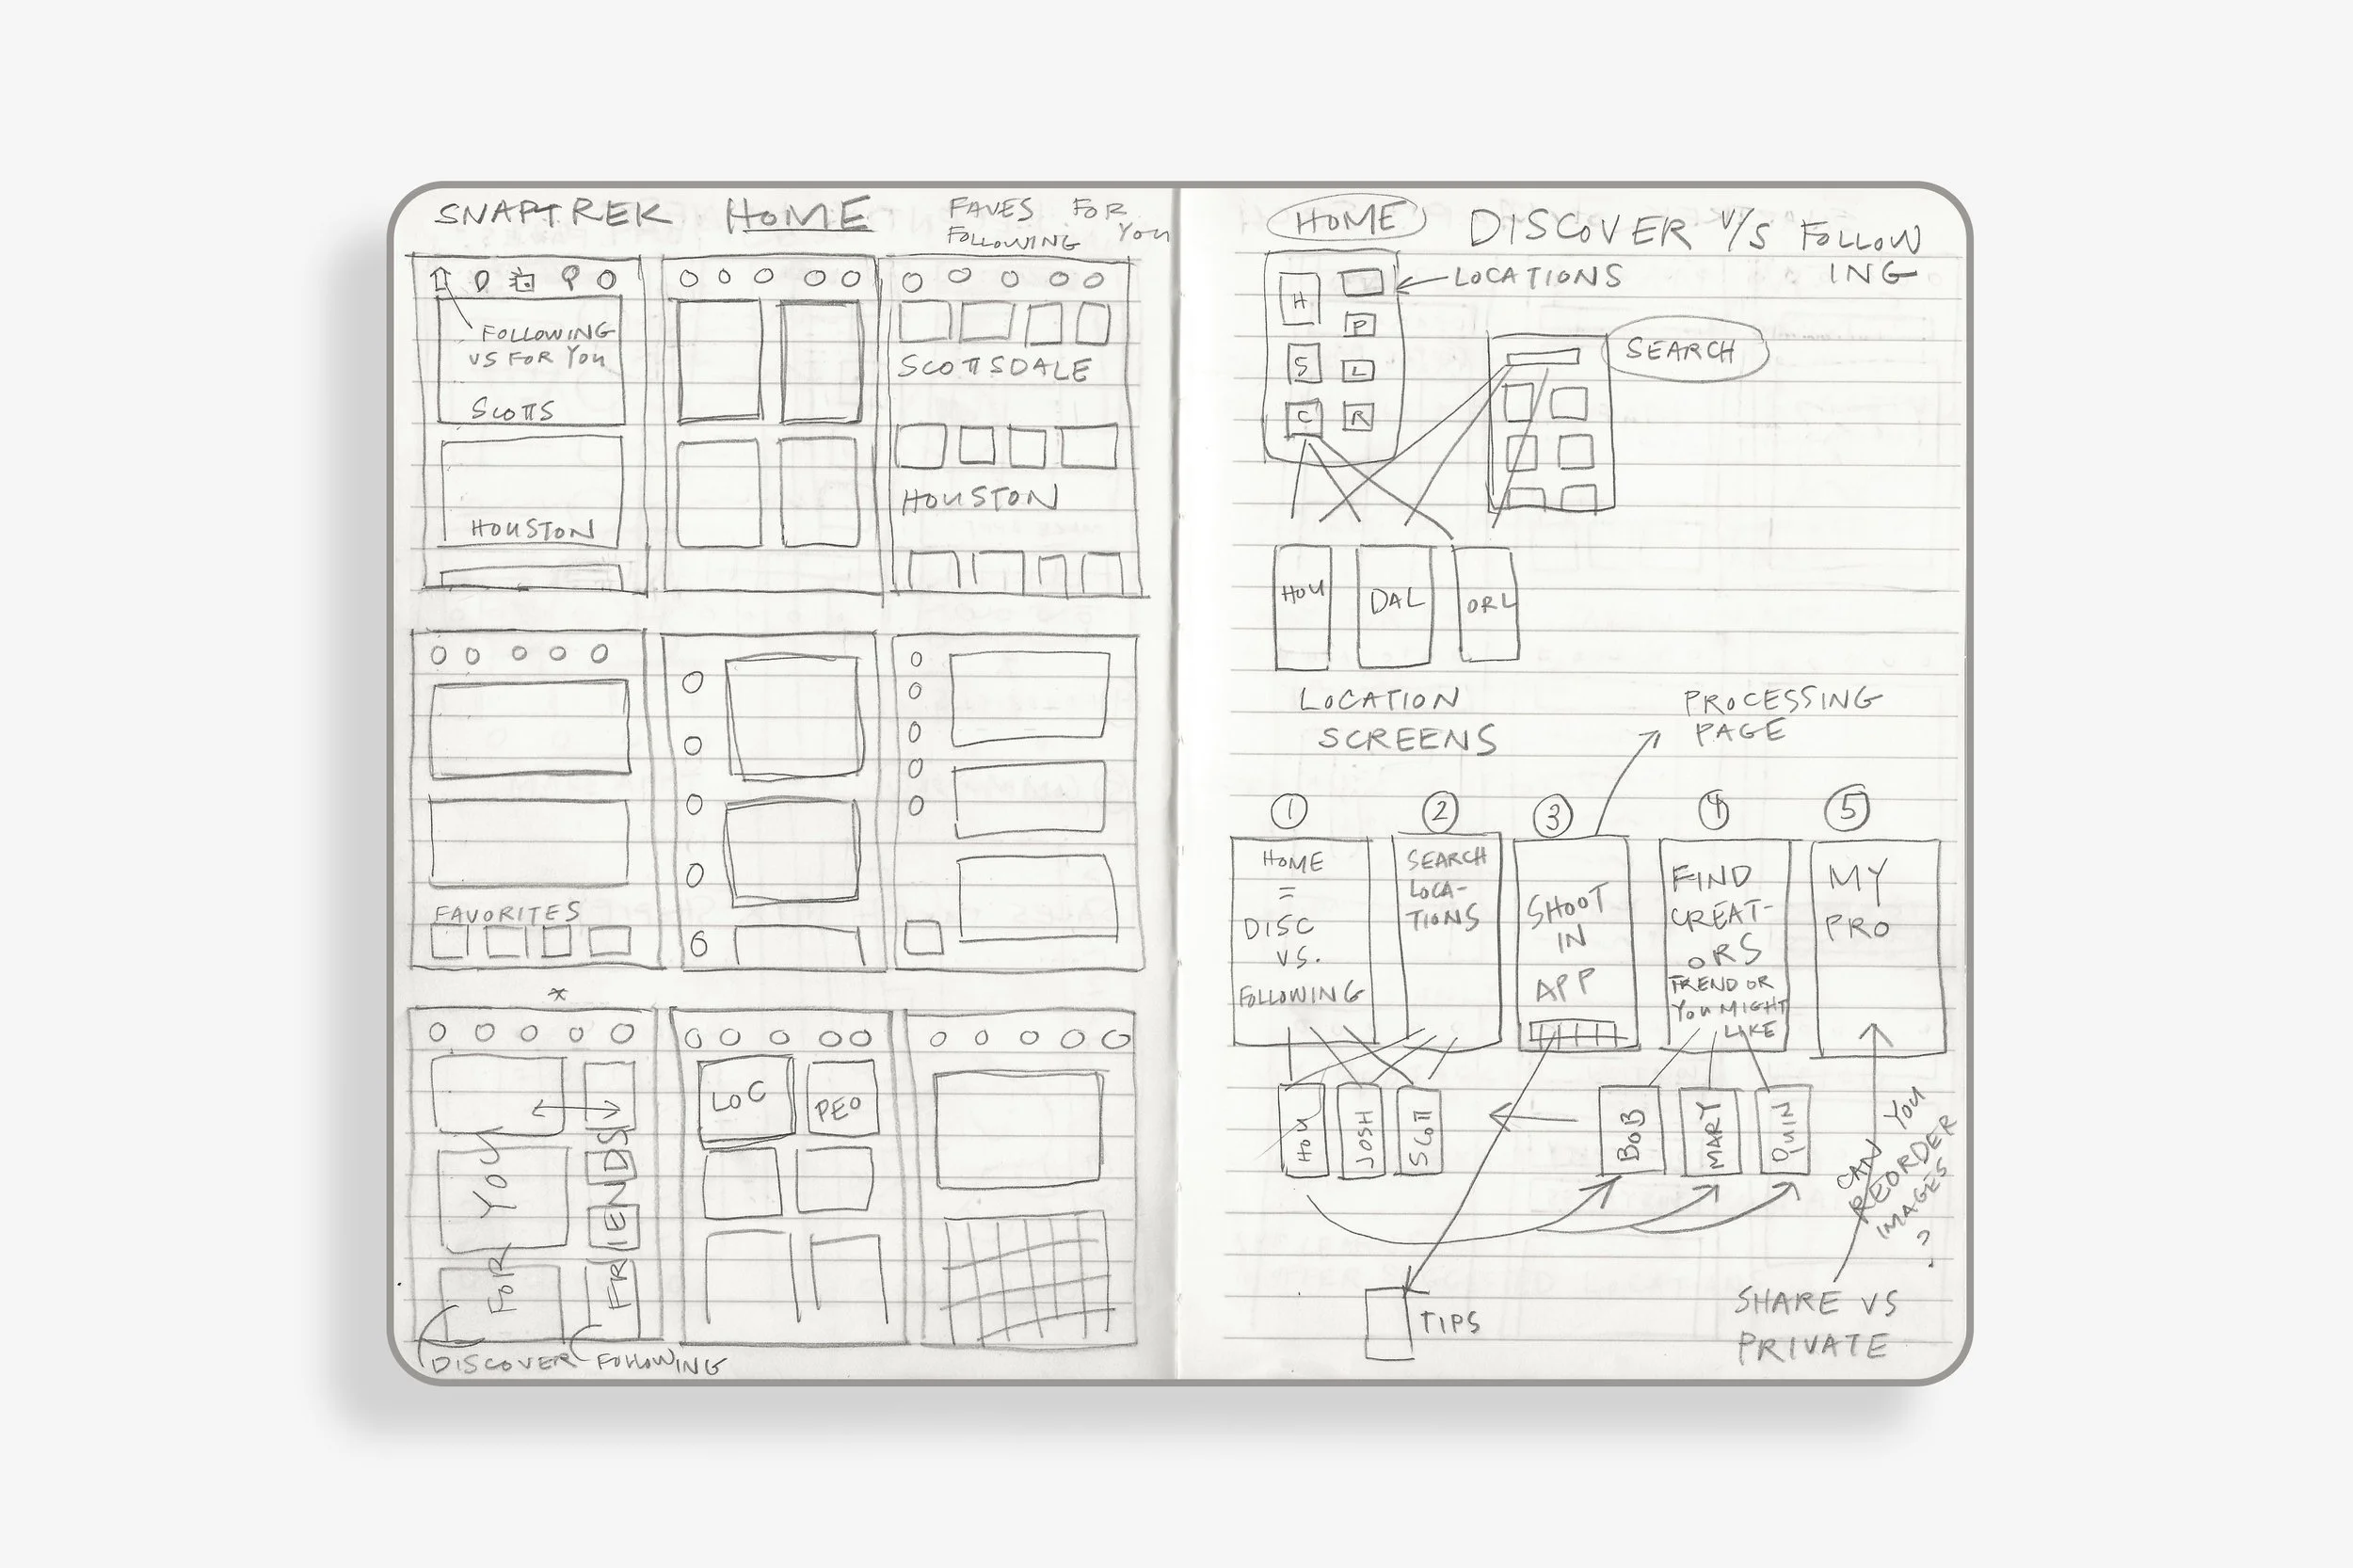 SNAPTREK HOME
FAVES FOR
FOLLOWING YOU
FOLLOWING
VS FOR YOU
SCOTTS
HOUSTON
SCOTTSDALE
HOUSTON
FAVORITES
*
FOR YOU
FRIENDS
LOC
PEO
DISCOVER
FOLLOWING
HOME
DISCOVER V/S FOLLOW
ING
LOCATIONS
H
P
S
L
C
R
SEARCH
HOU
DAL
ORL
LOCATION
SCREENS
PROCESSING
PAGE
1
2
3
4
5
HOME
=
DISC
VS.
FOLLOWING
SEARCH
LOCA-
TIONS
SHOOT
IN
APP
FIND
CREAT-
ORS
TREND OR
YOU MIGHT
LIKE
MY
PRO
HOU
JOSH
SCOTT
BOB
MARY
QUIN
CAN YOU
REORDER
IMAGES
?
TIPS
SHARE VS
PRIVATE